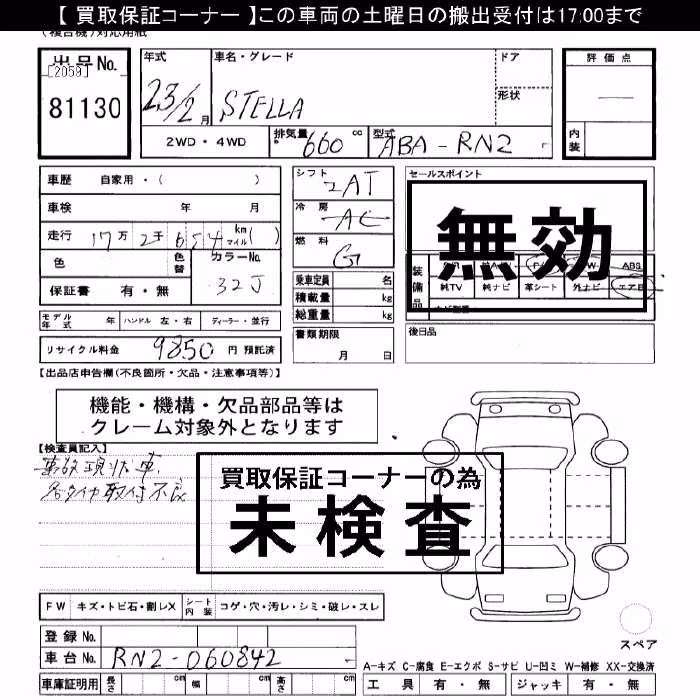 【 買取保証コーナー 】この車両の土曜日の搬出受付は17:00まで
(複合機)対応用紙
出品No.
[2059]
81130
年式
23/2月
車名・グレード
STELLA
ドア
形状
評価点
内装
2WD・4WD
排気量 660 cc
型式 ABA-RN2
車歴 自家用・( )
車検 年 月
走行 17万2千654 km マイル( )
色
色替
カラーNo.
32J
保証書 有・無
シフト 2AT
冷房 AC
燃料 G
乗車定員 名
積載量 kg
総重量 kg
書類期限
月 日
セールスポイント
無効
装備品
ABS
純TV 純ナビ 革シート 外ナビ エアB
後日品
モデル年式 年 ハンドル 左・右 ディーラー・並行
リサイクル料金 9850 円 預託済
【出品店申告欄(不良箇所・欠品・注意事項等)】
機能・機構・欠品部品等は
クレーム対象外となります
【検査員記入】
事故現状車
各タイヤ取付不良
買取保証コーナーの為
未検査
FW キズ・トビ石・割レX シート内装 コゲ・穴・汚レ・シミ・破レ・スレ
登録No.
車台No. RN2-060842
車庫証明用 長さ cm 幅 cm 高さ cm
スペア
A-キズ C-腐食 E-エクボ S-サビ U-凹ミ W-補修 XX-交換済
工具 有・無 ジャッキ 有・無